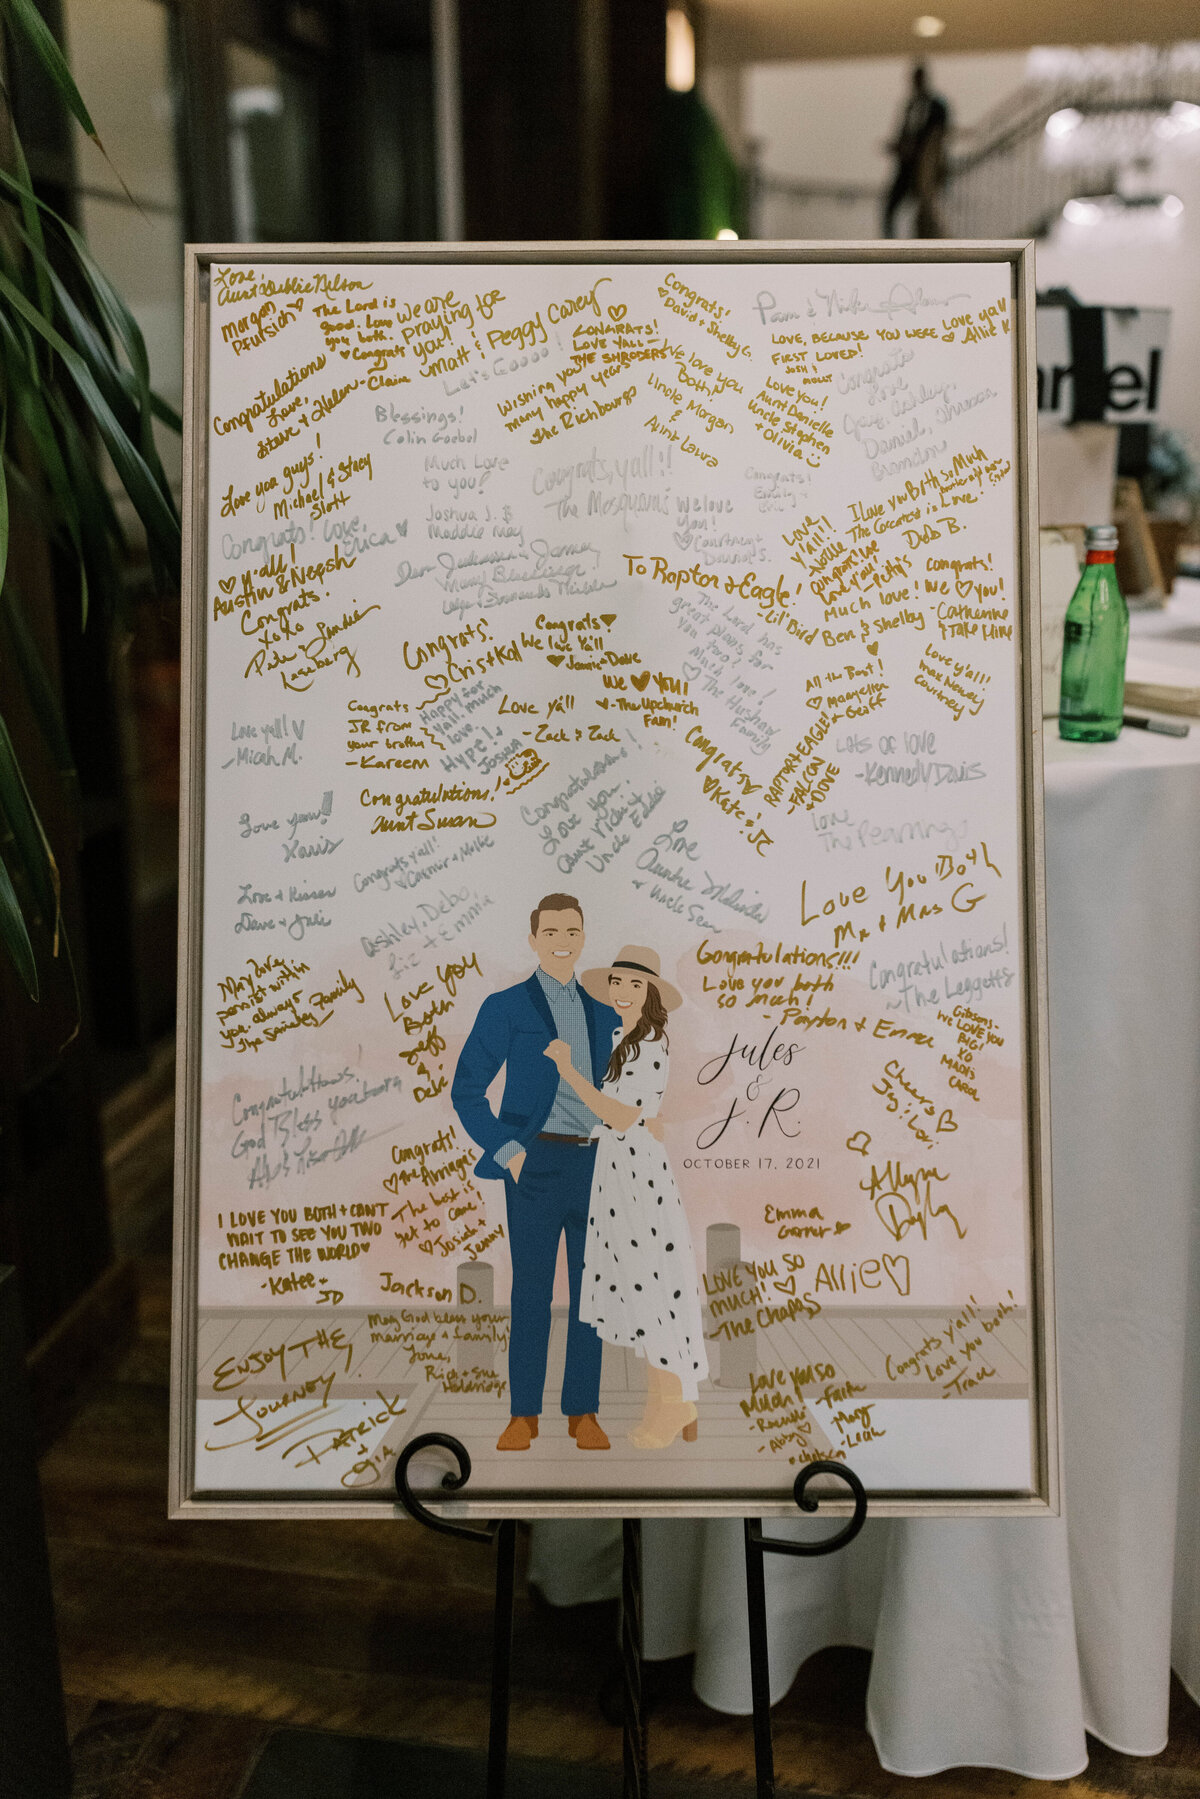 Love,
Aunt Debbie Nelson
Morgan
Pfursich
The Lord is
good. Love
you both.
Congrats
- Claire
We are
praying for
you!
Matt & Peggy Carey
Let's Goooo!
CONGRATS!
LOVE YALL -
THE SHRODERS
Congrats!
David + Shelby G.
Pam & Nick
LOVE, BECAUSE YOU WERE
FIRST LOVED!
JOSH &
MOLLY
Love ya'll
Allie K
Congratulations
Love,
Steve & Helen
Blessings!
Colin Goebel
Wishing you
many happy years
The Richbourgs
We love you
Both!
Uncle Morgan
&
Aunt Laura
Love You!
Aunt Danielle
Uncle Stephen
+ Olivia
Congrats
Love
Gary, Ashley,
Daniel,
Brandon
Love you guys!
Michael & Stacy
Slott
Much Love
to you!
Joshua J. &
Maddie May
Congrats, y'all!!
The Mosquera's
We love
You!
Courtney +
Donna S.
Congrats!
Emily +
Love
Y'all!!
- Noelle
I love you Both so Much
The Greatest is Love!
Deb B.
Congrats! Love,
Erica
y'all!
Austin & Neesh
Congrats.
XOXO
Pete & Lindie
To Raptor + Eagle!
- Lil' Bird
Much love!
Ben & Shelby
Congrats!
We ♡ you!
- Catherine
& Jake Hine
The Lord has
great plans for
you two!
Much love!
The
Family
Congrats!
Cris + Kal
Congrats!
We love Ya'll
Jamie + Dave
We ♡ YOU!
- The Upchurch
Fam!
All the Best!
Maryellen
& Geoff
Love y'all!
Max Newey
Courtney
Love yall!
- Micah M.
Congrats
JR from
your brotha
- Kareem
Happy for
yall, much
love.
HYPE!
Joshua
Love ya'll
- Zack & Zack
Congrats
Kate & JC
RAPTOR + EAGLE!
- FALCON
+ DOVE
Lots of love
- Kennedy Davis
Congratulations!
Aunt Susan
Congratulations!
Love You!
Aunt Vicki &
Uncle Eddie
Love
The Pearnings
Love you!!
Karis
Congrats yall!
Connor + Mollie
Love
Auntie Melinda
& Uncle Sean
Love You Both
Mr & Mrs G
Love + Kisses
Dave + Julie
Ashley, Debo,
Liz + Emma
May love,
persist within
you always
The Family
Love you
Both
Jeff
&
Debi
Congratulations!!!
Love you both
so much!
- Payton + Emma
Congratulations!
~ The Leggetts
Gibsons -
WE LOVE YOU
BIG!
XO
MADIS
CAROL
Jules
&
J.R.
OCTOBER 17, 2021
Cheers
Congratulations!
God Bless you both
Congrats!
The Arriagas
The best is
yet to come!
Josiah +
Jenny
I LOVE YOU BOTH + CAN'T
WAIT TO SEE YOU TWO
CHANGE THE WORLD
- Katee +
JD
Emma
Garner
Jackson D.
LOVE YOU SO
MUCH!
- The Chapas
Allie
May God bless your
marriage & family!
Love,
Rich + Sue
Holdridge
ENJOY THE
JOURNEY
PATRICK
+
GIA
Love you so
Much
- Abby
- Chelsea
- Faith
Mary
- Leah
Congrats y'all!
Love you both!
- Trace